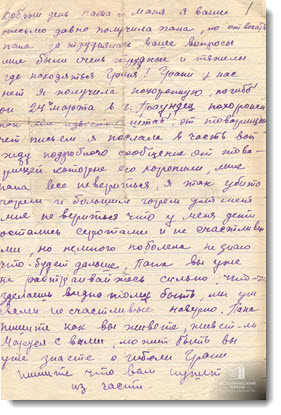 Добрый день Папа и Маня я ваше
письмо давно получила папа, но отвечать
папа затруднялась ваше вопросы
мне были очень трудные и тяжелы
где находяться Граня! Грани у нас
нет я получила похоронную, погиб
он 24 марта в г. похоронен
от товарищей
чет писем я послала в часть
жду подробного сообщение от това-
рищей которые его хоронили, мне
папа все невериться, я так убита
горем и большим горем для меня
мне не вериться что у меня дети
остались сиротами и не счастливы
ми, но немного поболена незнаю
что будет дальше, Папа вы уже
не растраивайтесь сильно, что-ж
зделаешь видно тому быть, мы
не счастливые наверно. Папа
пишите как вы живете, живет-ли
Маруся с вами, может быть вы
уже знаете о гибели Грани
пишите что вам пишут
из части.